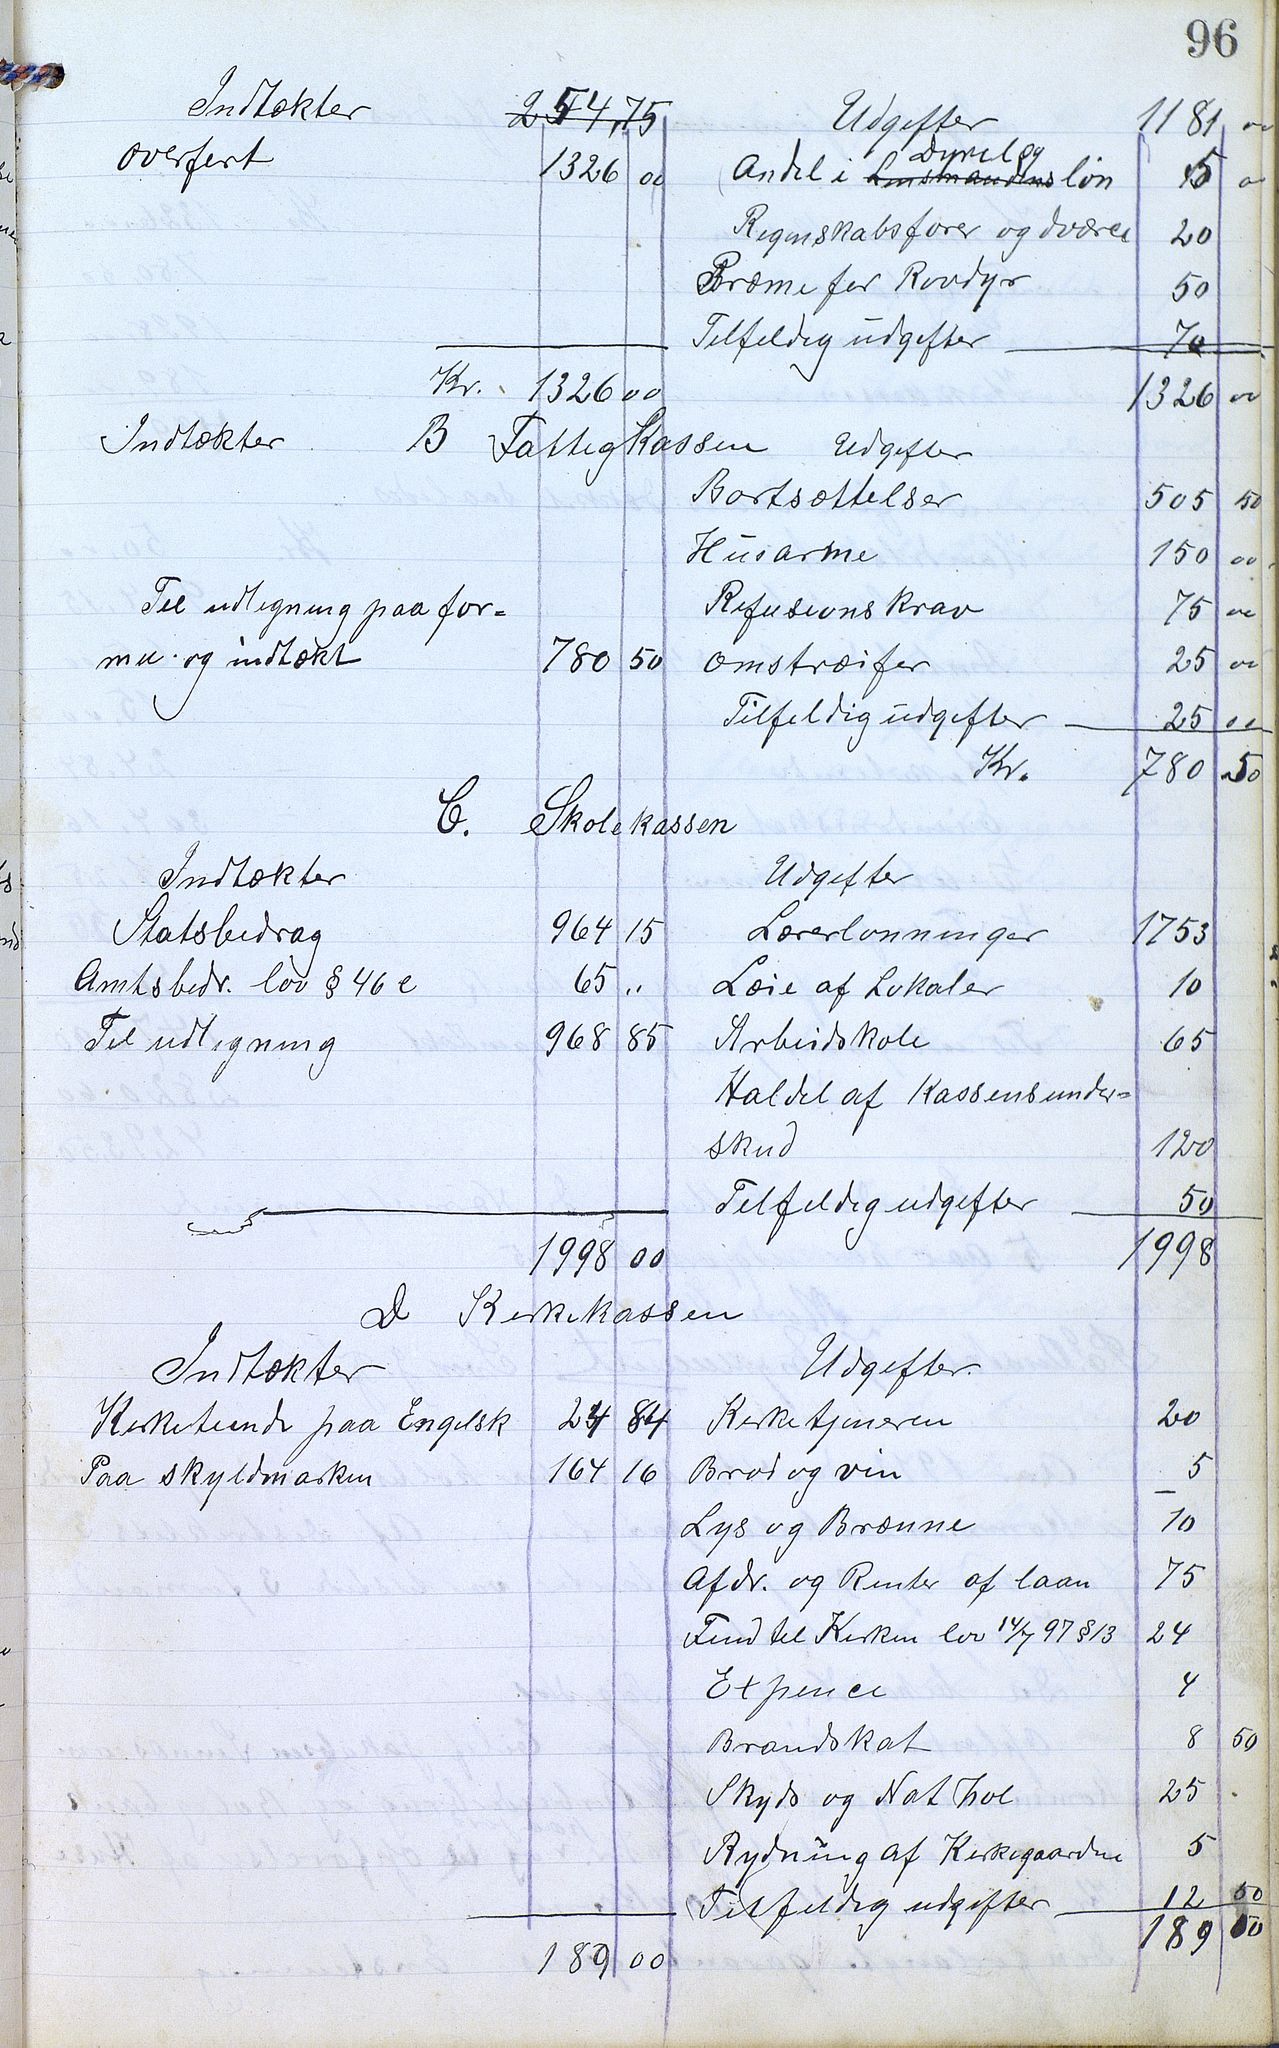 96
Indtækter 254,75 Udgifter 1181 00
overført 1326 00 Andel i Lensmandens Dyrelæg løn 5 00
Regnskabsfører og dvœree 20
Præme for Rovdyr 50
Tilfeldig udgifter 70
Kr. 1326 00 1326 00
Indtækter B Fattigkassen Udgifter
Bortsættelser 505 50
Husarme 150 00
Til udligning paa for= Refusionskrav 75 00
mu. og indtækt 780 50 omstræifer 25 00
Tilfeldig udgifter 25 00
Kr. 780 50
C. Skolekassen
Indtækter Udgifter
Statsbedrag 964 15 Lærerlønninger 1753
Amtsbedr. lov § 46 e 65 „ Læie af Lokaler 10
Til udligning 968 85 Arbeidskole 65
Haldel af Kassensunder=
skud 120
Tilfeldig udgifter 50
1998 00 1998
D Kirkekassen
Indtækter Udgifter.
Kirketiende paa Engelsk 24 84 Kirketjeneren 20
Paa skyldmarken 164 16 Brød og vin 5
Lys og Brænne 10
Afdr. og Renter af laan 75
Fond til Kirken lov 14/7 97 § 13 24
Expence 4
Brandskat 8 50
Skyds og Nat hol 25
Rydning af Kirkegaarden 5
Tilfeldig udgifter 12 50
189 00 189 00